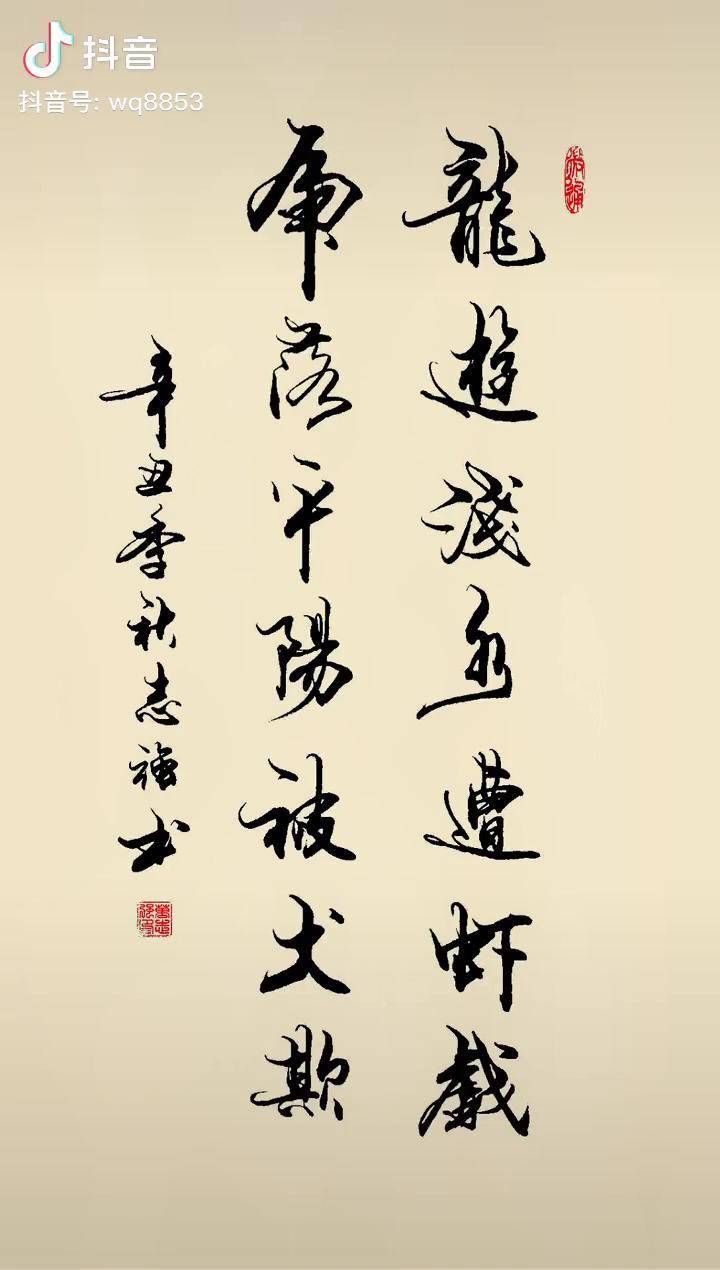 抖音
抖音号: wq8853
龍遊淺水遭虾戲
虎落平陽被犬欺
辛丑季秋志強书